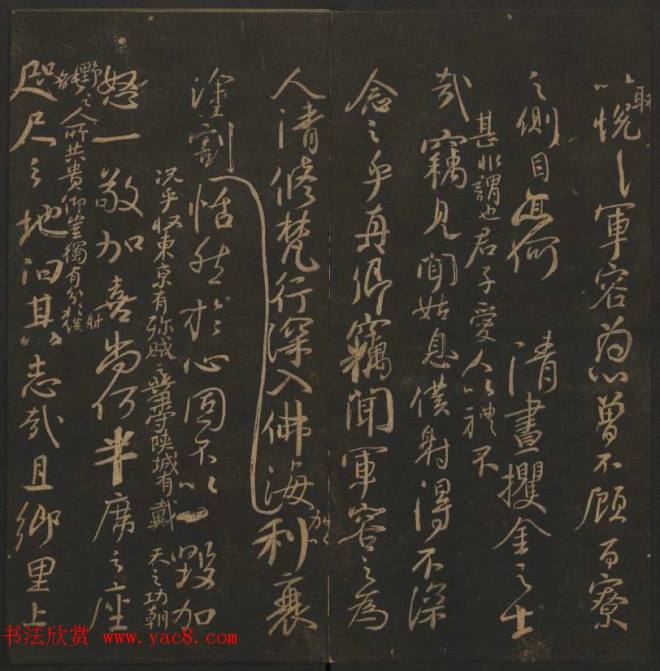 取
以悦軍容為心曾不顧百寮
之側目亦何 清晝攫金之士
甚非謂也君子愛人以禮不
哉竊見聞姑息僕射得不深
念之乎真卿竊聞軍容之為
人清修梵行深入佛海加以利衰
塗割恬然於心固不以一毀加
況乎收東京有殄賊之業守陝城有戴天之功朝
怒一敬加喜尚何半席之座
野之人所共貴仰豈獨有分於僕射
咫尺之地汩其志哉且鄉里上
书法欣赏 www.yac8.com